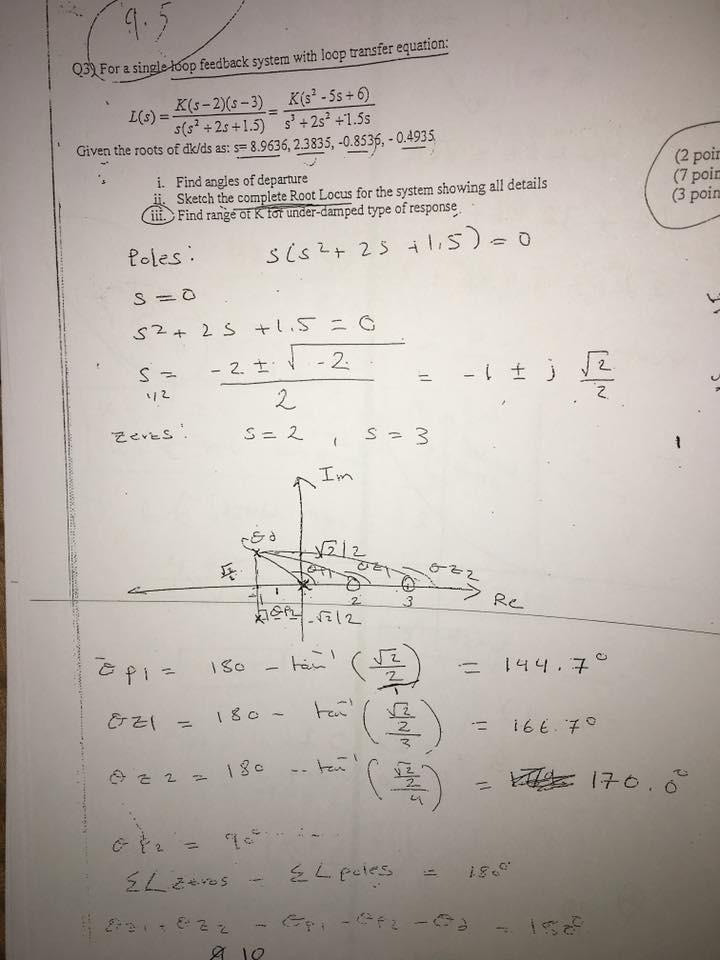 9.5
Q3) For a single loop feedback system with loop transfer equation:
L(s) = K(s-2)(s-3) / s(s² + 2s + 1.5) = K(s² - 5s + 6) / s³ + 2s² + 1.5s
Given the roots of dk/ds as: s= 8.9636, 2.3835, -0.8536, - 0.4935
i. Find angles of departure
ii. Sketch the complete Root Locus for the system showing all details
iii. Find range of K for under-damped type of response.
(2 poin
(7 poin
(3 poin
Poles: s(s² + 2s + 1.5) = 0
s = 0
s² + 2s + 1.5 = 0
s 1,2 = -2 ± √-2 / 2 = -1 ± j √2 / 2
zeros: s = 2 , s = 3
Im
θd √2/2
θp1 θz1 θz2
-1 2 3 Re
θp2 -√2/2
θp1 = 180 - tan⁻¹ (√2/2 / 1) = 144.7°
θz1 = 180 - tan⁻¹ (√2/2 / 3) = 166.7°
θz2 = 180 - tan⁻¹ (√2/2 / 4) = 170.0°
θp2 = 90°
Σ∠zeros - Σ∠poles = 180°
θz1 + θz2 - θp1 - θp2 - θd = 180°
10